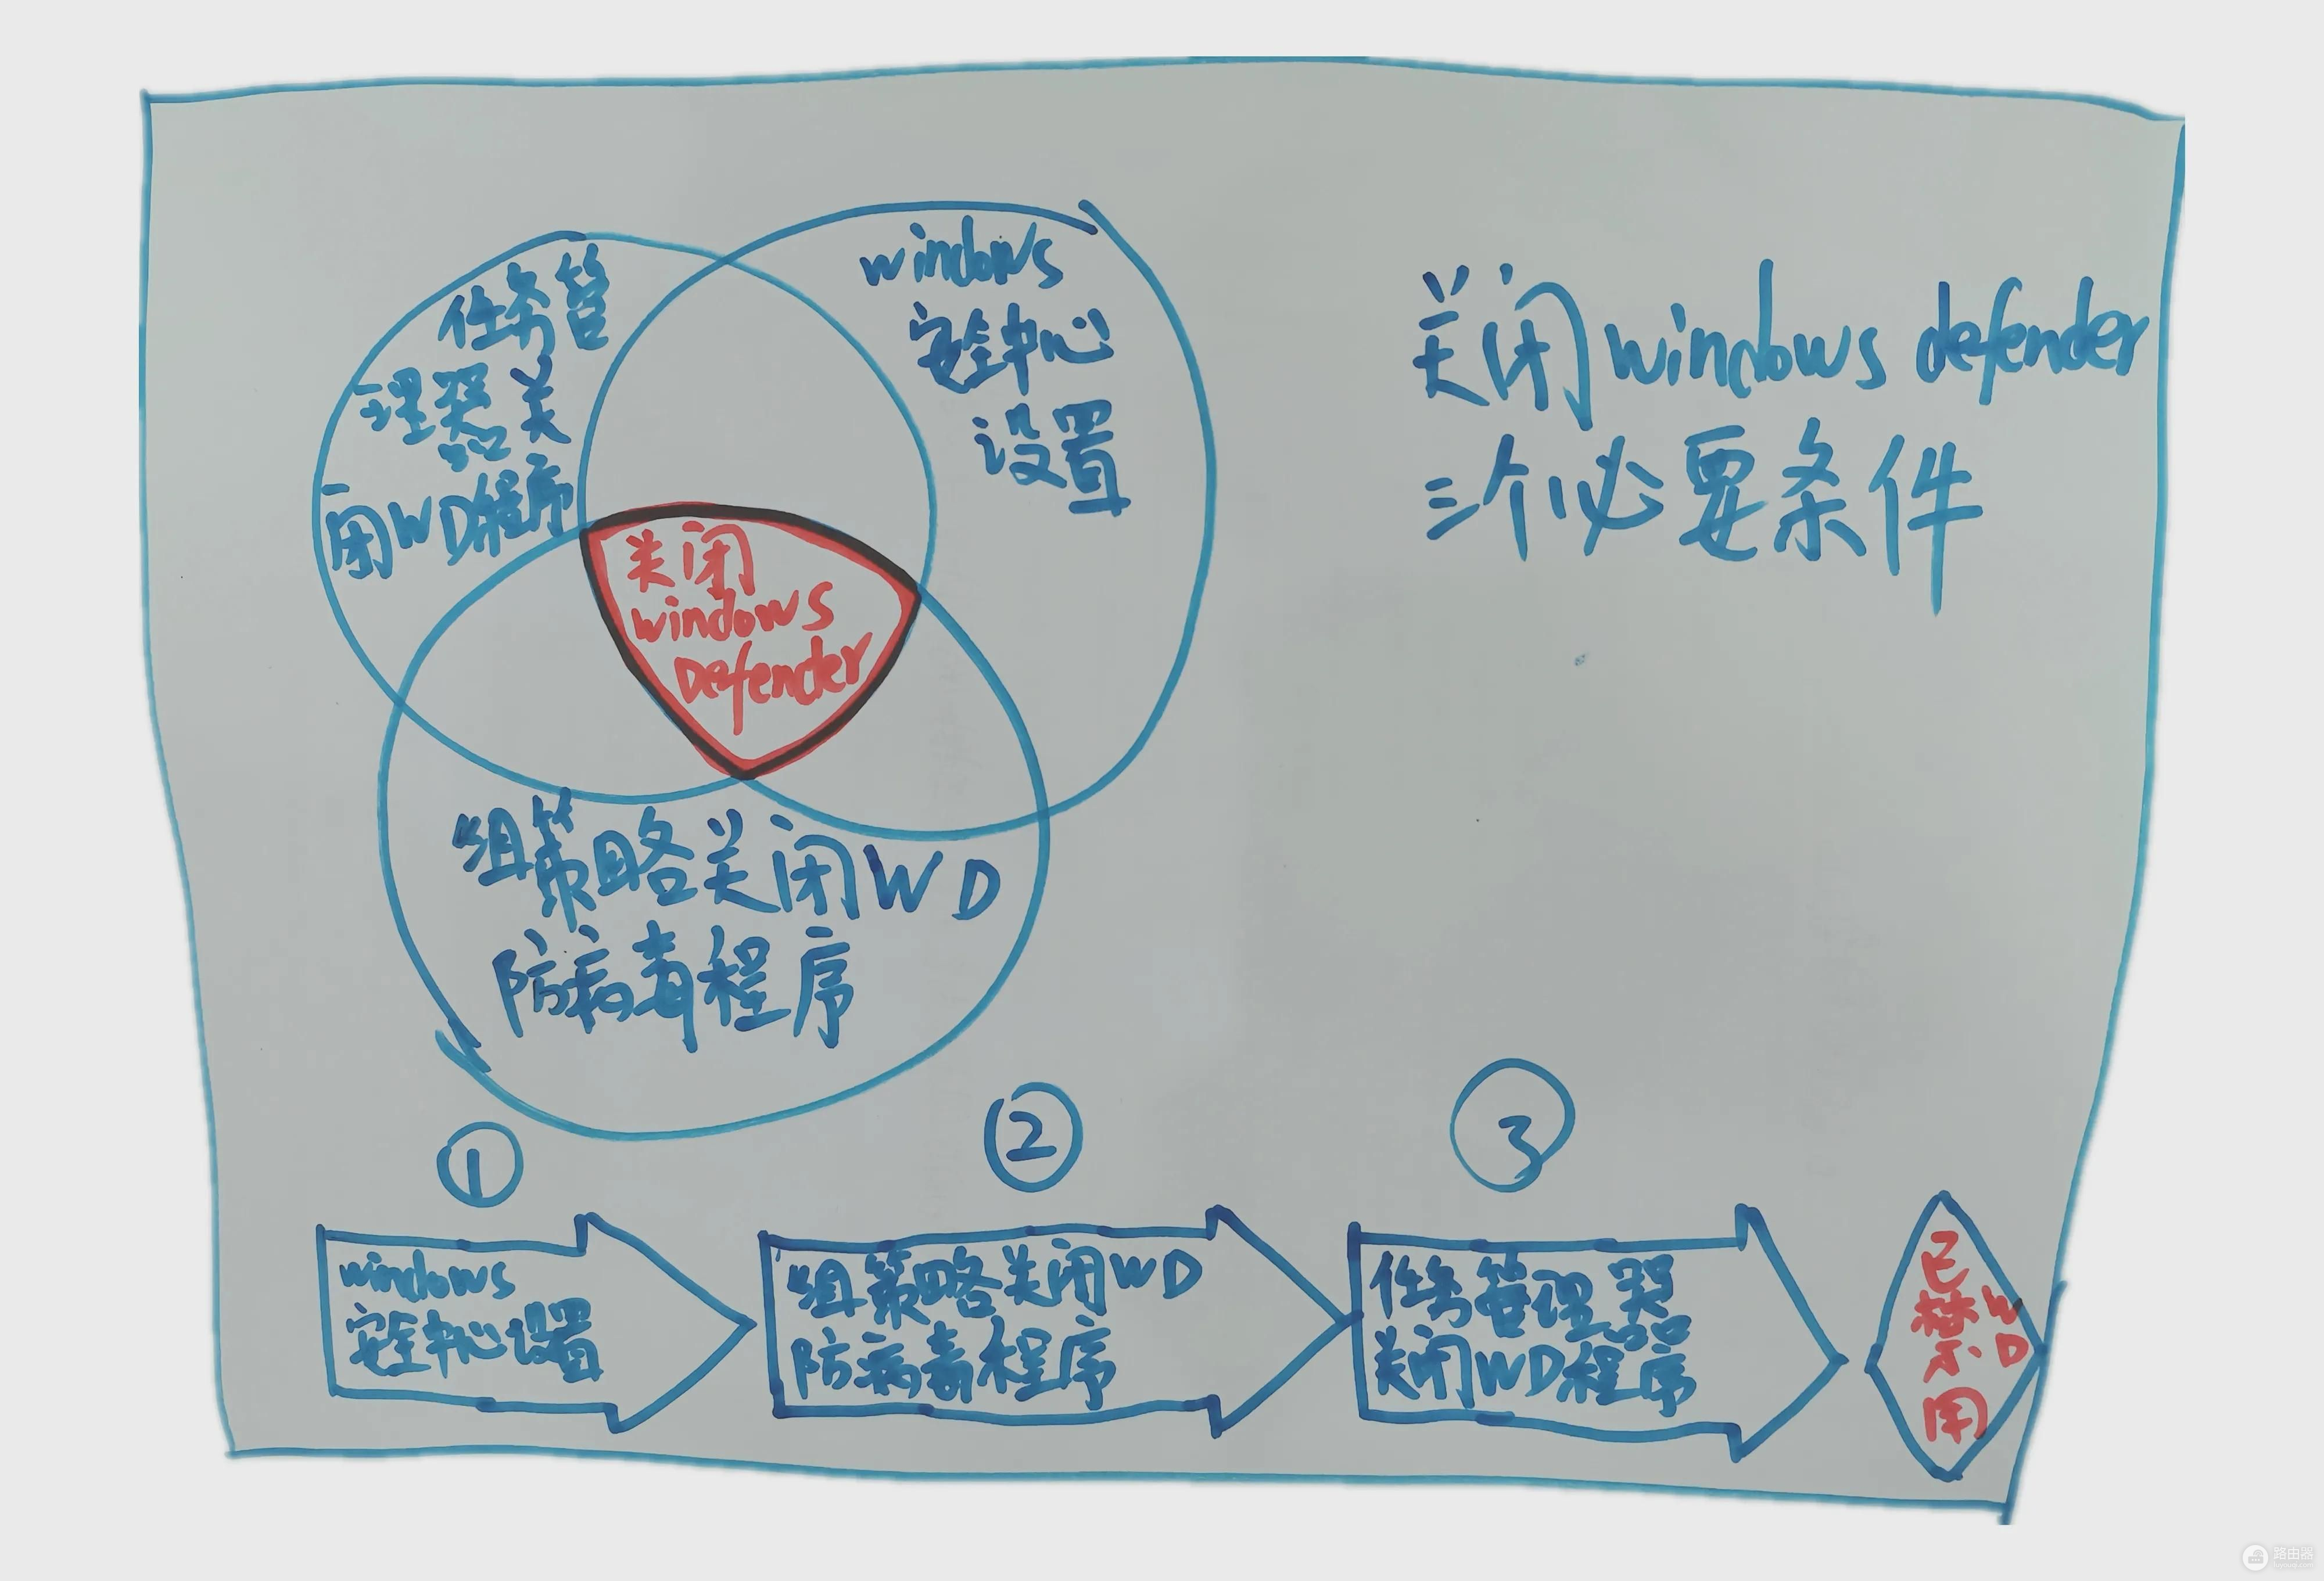 任务管
理器关
闭WD程序
windows
安全中心
设置
关闭windows defender
三个必要条件
关闭
windows
Defender
组策略关闭WD
防病毒程序
①
②
③
windows
安全中心设置
组策略关闭WD
防病毒程序
任务管理器
关闭WD程序
已禁用
WD
路由器